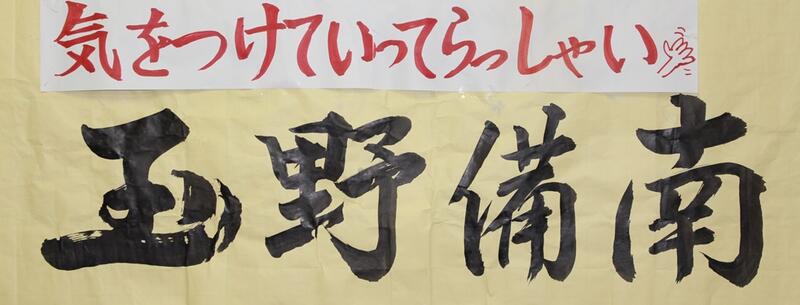 気をつけていってらっしゃい
玉野備南